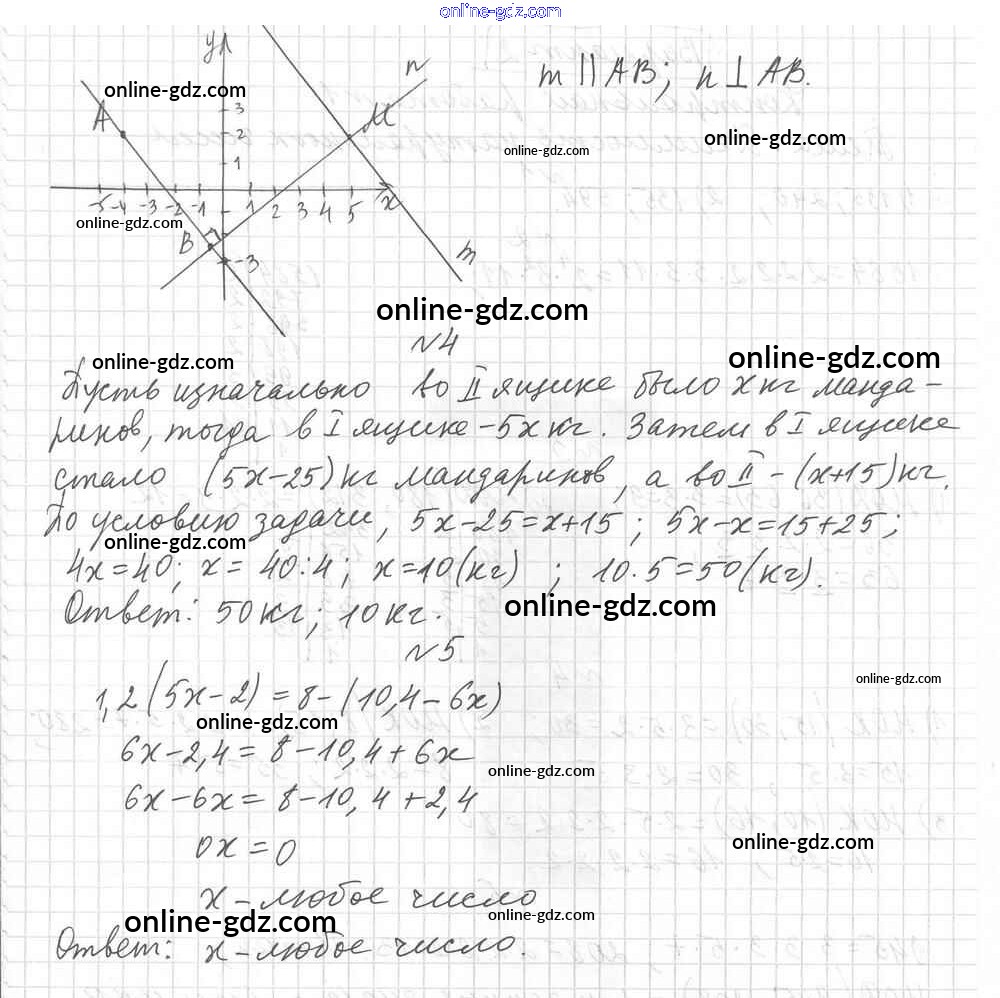 online-gdz.com
y
n
m || AB; n ⊥ AB.
online-gdz.com
A
3
M
2
online-gdz.com
online-gdz.com
1
-5 -4 -3 -2 -1 1 2 3 4 5 x
online-gdz.com
B
m
-3
online-gdz.com
№4
online-gdz.com
online-gdz.com
Пусть изначально во II ящике было x кг манда-
ринов, тогда в I ящике - 5x кг. Затем в I ящике
стало (5x-25) кг мандаринов, а во II - (x+15) кг.
По условию задачи, 5x-25=x+15; 5x-x=15+25;
online-gdz.com
4x=40; x=40:4; x=10(кг); 10·5=50(кг).
online-gdz.com
Ответ: 50кг; 10кг.
№5
online-gdz.com
1,2(5x-2)=8-(10,4-6x)
online-gdz.com
6x-2,4=8-10,4+6x
online-gdz.com
6x-6x=8-10,4+2,4
online-gdz.com
0x=0
x-любое число
online-gdz.com
online-gdz.com
Ответ: x-любое число.